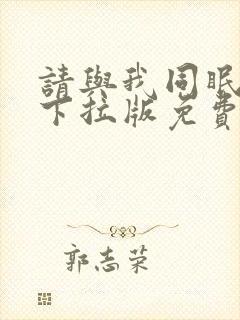 請與我同眠
下拉版免費
郭志荣